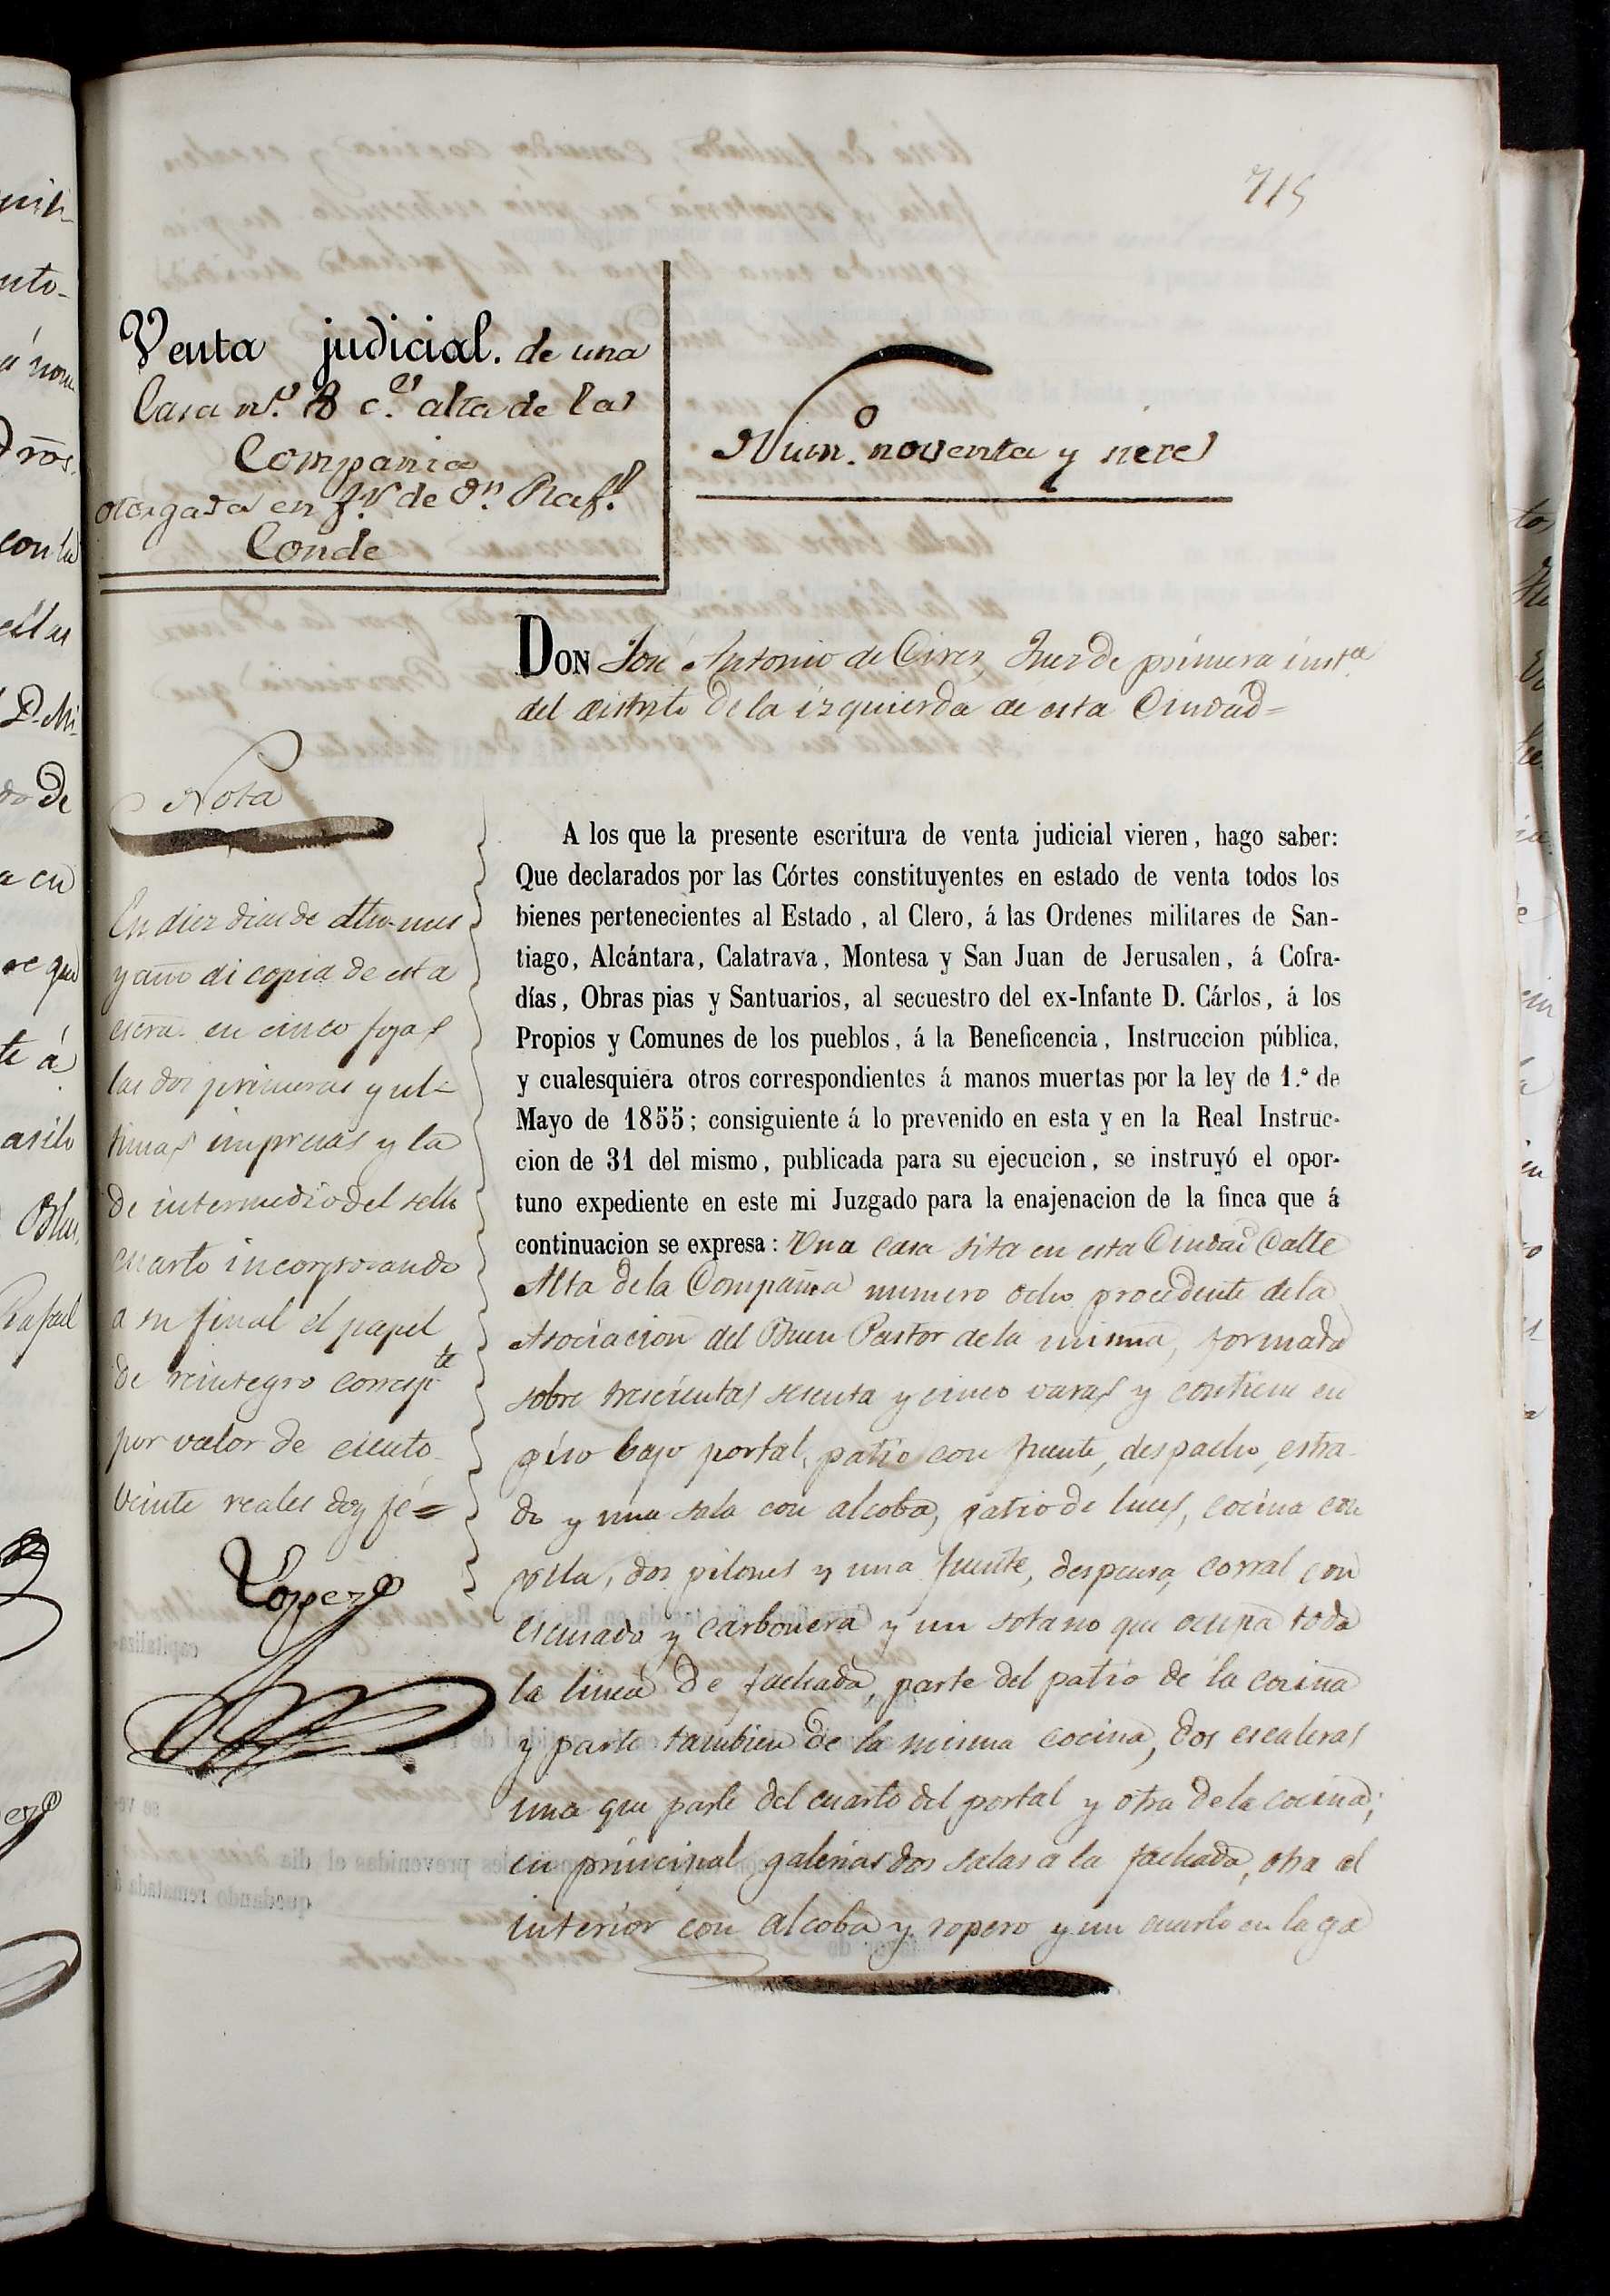 715
Venta judicial. de una
Casa n.º 8 c.e alta de la
Compania
otorgada en f.r de D.n Raf.l
Conde
Num.º noventa y siete
DON José Antonio de Cires, Juez de primera inst.a
del distrito de la izquierda de esta Ciudad=
Nota
En diez dias de dho. mes
y año di copia de esta
escra. en cinco fojas
las dos primeras y ul-
timas impresas y la
de intermedio del sello
cuarto incorporando
a su final el papel
de reintegro corresp.te
por valor de ciento
veinte reales doy fé=
Lopez
A los que la presente escritura de venta judicial vieren, hago saber:
Que declarados por las Córtes constituyentes en estado de venta todos los
bienes pertenecientes al Estado, al Clero, á las Ordenes militares de San-
tiago, Alcántara, Calatrava, Montesa y San Juan de Jerusalen, á Cofra-
días, Obras pias y Santuarios, al secuestro del ex-Infante D. Cárlos, á los
Propios y Comunes de los pueblos, á la Beneficencia, Instruccion pública,
y cualesquiera otros correspondientes á manos muertas por la ley de 1.º de
Mayo de 1855; consiguiente á lo prevenido en esta y en la Real Instruc-
cion de 31 del mismo, publicada para su ejecucion, se instruyó el opor-
tuno expediente en este mi Juzgado para la enajenacion de la finca que á
continuacion se expresa: Una casa sita en esta Ciudad Calle
Alta de la Compañia numero ocho procedente de la
Asociacion del Buen Pastor de la misma, formada
sobre trescientas sesenta y cinco varas y contiene en
piso bajo portal, patio con fuente, despacho, estra-
do y una sala con alcoba, patio de luces, cocina con
pila, dos pilones y una fuente, despensa, corral con
escusado y carbonera y un sotano que ocupa toda
la linea de fachada, parte del patio de la cocina
y parte tambien de la misma cocina, dos escaleras
una que parte del cuarto del portal y otra de la cocina;
en principal galerias dos salas a la fachada, otra al
interior con alcoba y ropero y un cuarto en la ga